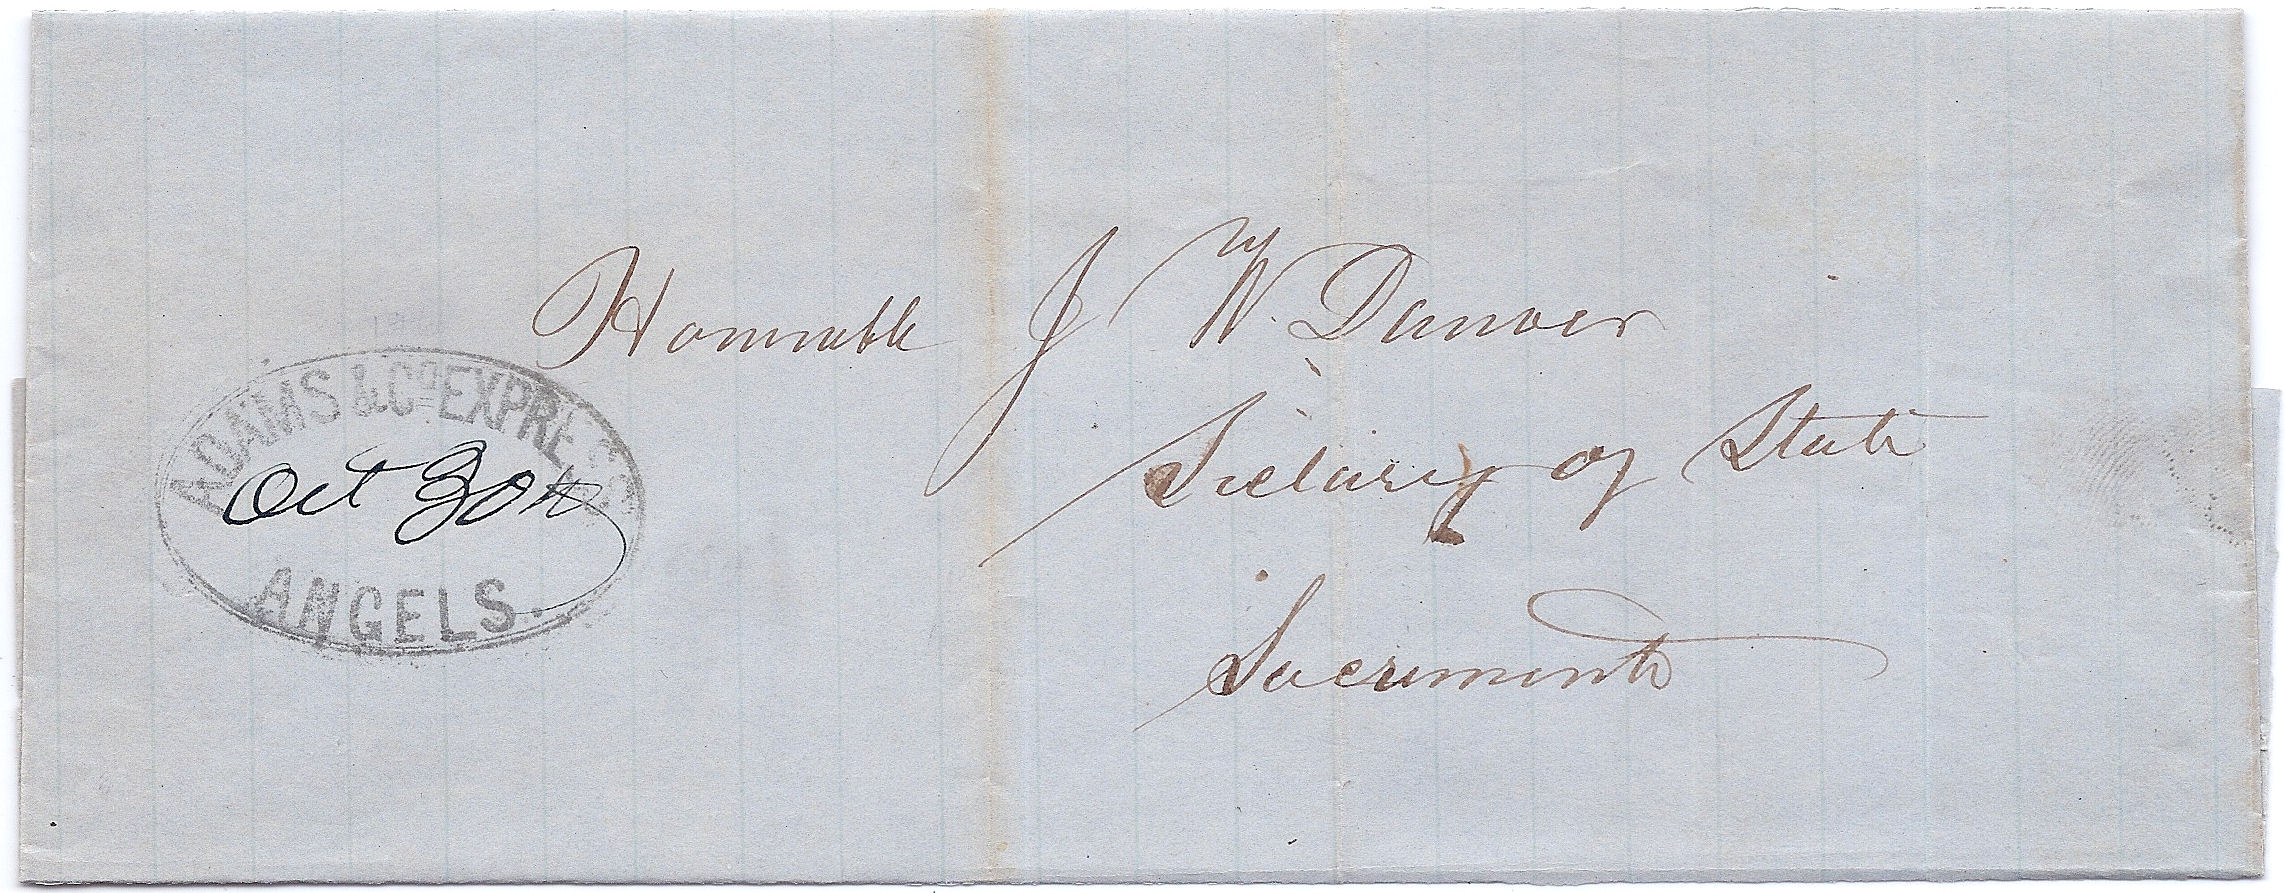 Honorable J W. Danver
Secretary of State
Sacramento
ADAMS & Co EXPRESS
Oct 30th
ANGELS.